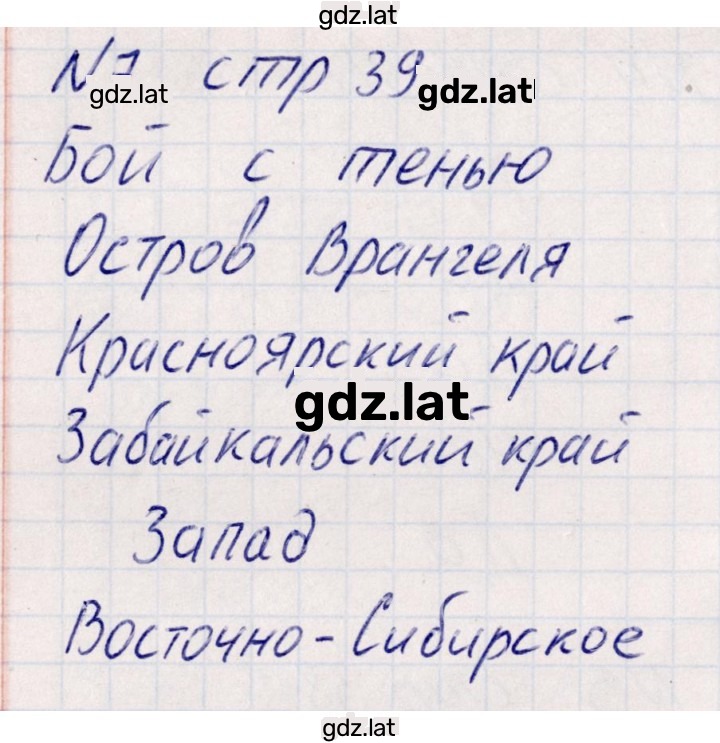 gdz.lat
№1 стр 39
gdz.lat gdz.lat
Бой с тенью
Остров Врангеля
Красноярский край
gdz.lat
Забайкальский край
Запад
Восточно-Сибирское
gdz.lat